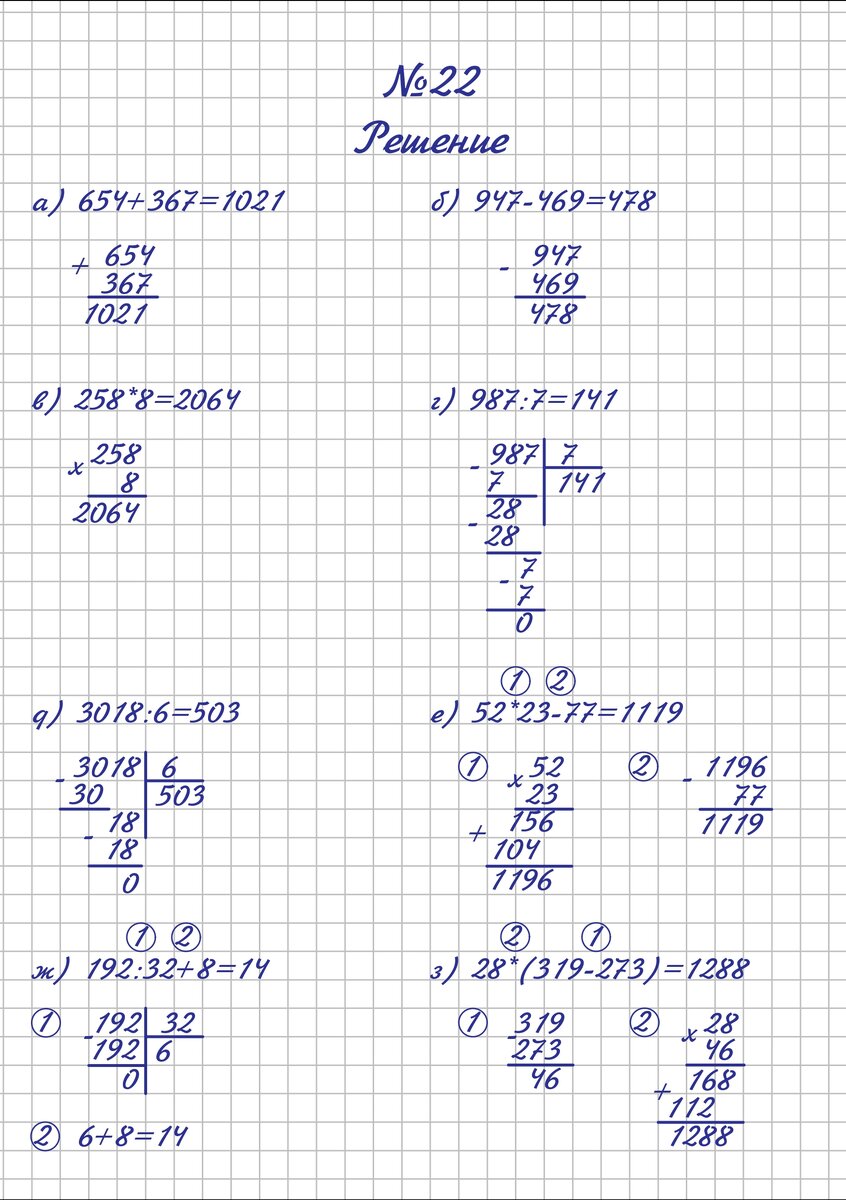 №22
Решение
а) 654+367=1021
+ 654
367
1021
б) 947-469=478
- 947
469
478
в) 258*8=2064
x 258
8
2064
г) 987:7=141
- 987 7
7 141
28
- 28
- 7
7
0
д) 3018:6=503
- 3018 6
30 503
- 18
18
0
1 2
е) 52*23-77=1119
1 x 52
23
+ 156
104
1196
2 - 1196
77
1119
1 2
ж) 192:32+8=14
1 -192 32
192 6
0
2 6+8=14
2 1
з) 28*(319-273)=1288
1 -319
273
46
2 x 28
46
+ 168
112
1288